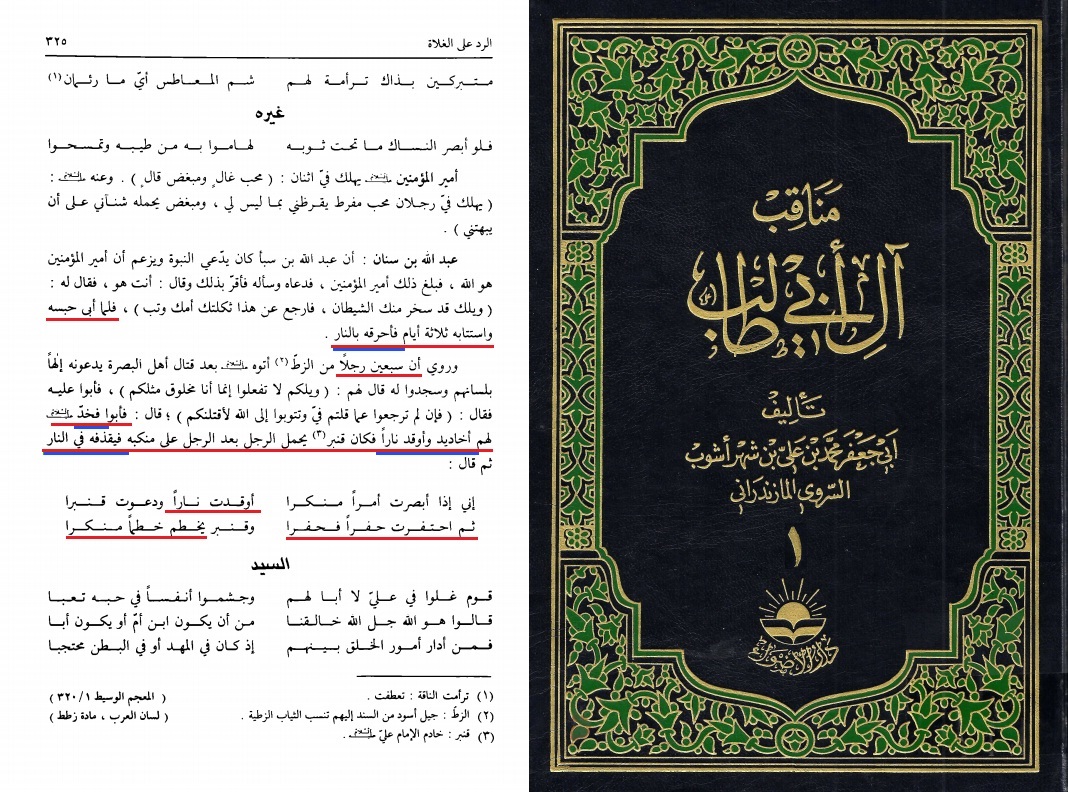 الرد على الغلاة ٣٢٥
متبركين بذاك ترأمة لهم شم المعاطس أيّ ما رئمان (١)
غيره
فلو أبصر النساك ما تحت ثوبه لهاموا به من طيبه وتمسحوا
أمير المؤمنين عليه السلام يهلك فيّ اثنان : ( محب غالٍ ومبغض قالٍ ) . وعنه عليه السلام :
( يهلك فيّ رجلان محب مفرط يقرظني بما ليس لي ، ومبغض يحمله شنآني على أن
يبهتني ) .
عبد الله بن سنان : أن عبد الله بن سبأ كان يدّعي النبوة ويزعم أن أمير المؤمنين
هو الله ، فبلغ ذلك أمير المؤمنين ، فدعاه وسأله فأقرّ بذلك وقال : أنت هو ، فقال له :
( ويلك قد سخر منك الشيطان ، فارجع عن هذا ثكلتك أمك وتب ) ، فلما أبى حبسه
واستتابه ثلاثة أيام فأحرقه بالنار .
وروي أن سبعين رجلاً من الزطّ (٢) أتوه عليه السلام بعد قتال أهل البصرة يدعونه إلهاً
بلسانهم وسجدوا له قال لهم : ( ويلكم لا تفعلوا إنما أنا مخلوق مثلكم ) ، فأبوا عليه
فقال : ( فإن لم ترجعوا عما قلتم فيّ وتتوبوا إلى الله لأقتلنكم ) ؛ قال : فأبوا فخدّ عليه السلام
لهم أخاديد وأوقد ناراً فكان قنبر (٣) يحمل الرجل بعد الرجل على منكبه فيقذفه في النار
ثم قال :
إني إذا أبصرت أمراً منكرا أوقدت ناراً ودعوت قنبرا
ثم احتفرت حفراً فحفرا وقنبر يخطم خطماً منكرا
السيد
قوم غلوا في عليّ لا أبا لهم وجشموا أنفساً في حبه تعبا
قالوا هو الله جل الله خالقنا من أن يكون ابن أمّ أو يكون أبا
فمن أدار أمور الخلق بينهم إذ كان في المهد أو في البطن محتجبا
(١) ترأمت الناقة : تعطفت . ( المعجم الوسيط ١/ ٣٢٠ )
(٢) الزطّ : جيل أسود من السند إليهم تنسب الثياب الزطية . ( لسان العرب ، مادة زطط )
(٣) قنبر : خادم الإمام عليّ عليه السلام .
مناقب
آل أبي طالب
تأليف
أبي جعفر محمد بن علي بن شهر أشوب
السروي المازندراني
١
دار الأضواء